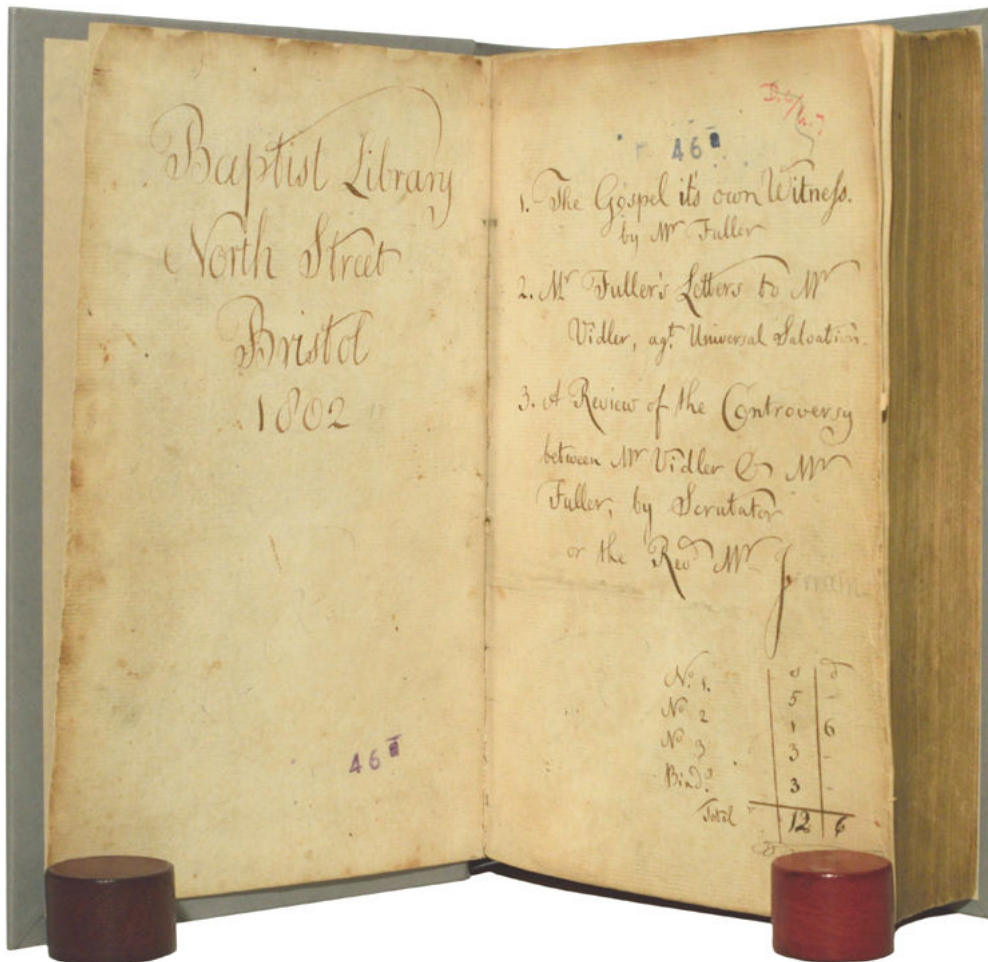 Baptist Library
North Street
Bristol
1802
46a
46a
1. The Gospel it's own Witness.
by Mr Fuller
2. Mr Fuller's Letters to Mr
Vidler, agt. Universal Salvation.
3. A Review of the Controversy
between Mr Vidler & Mr
Fuller, by Scrutator
or the Revd Mr J
s d
No. 1. 5 -
No 2 1 6
No 3 3 -
Bindg. 3 -
Total 12 6